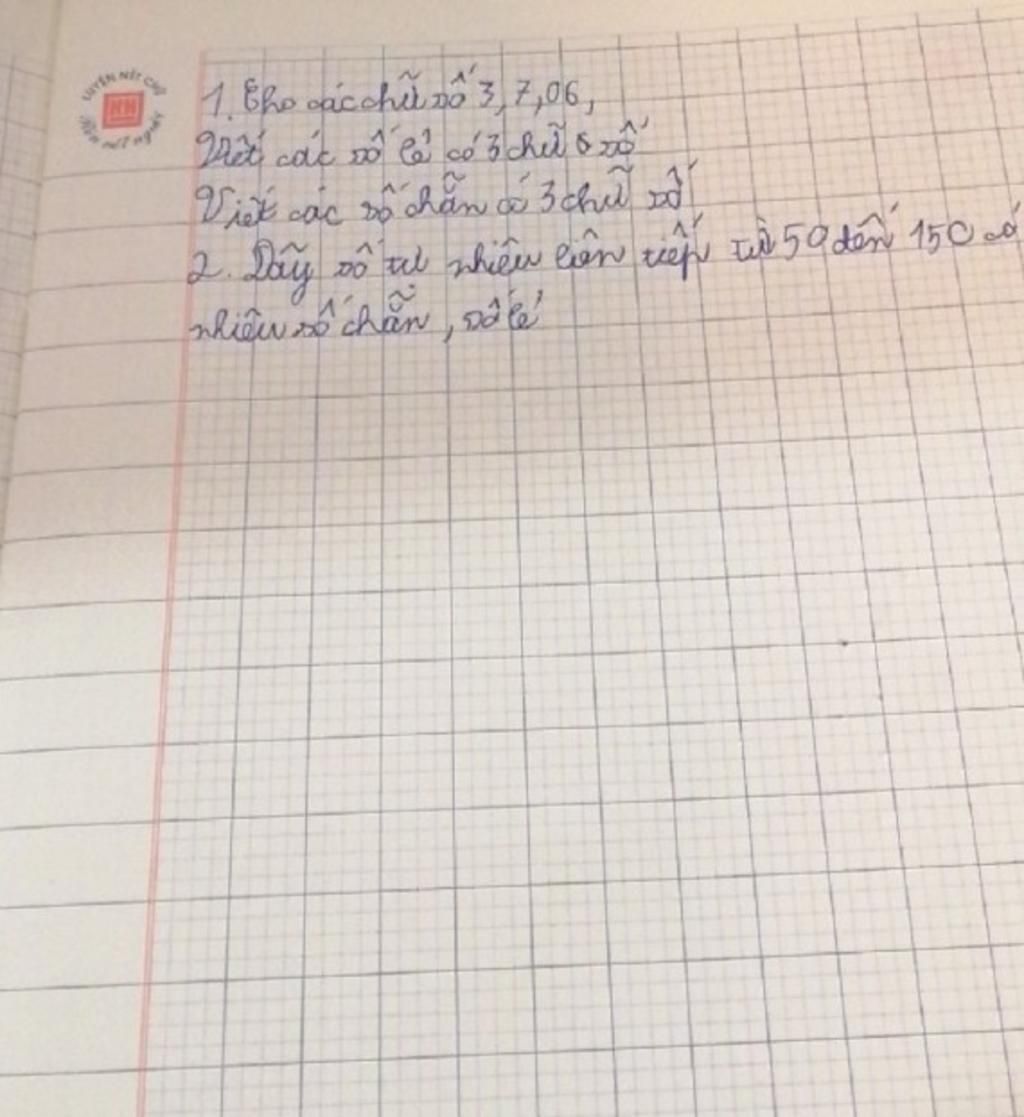 LUYỆN NÉT CHỮ
HN
RÈN NẾT NGƯỜI
1. Cho các chữ số 3, 7, 06,
Viết các số lẻ có 3 chữ số
Viết các số chẵn có 3 chữ số
2. Dãy số tự nhiên liên tiếp từ 50 đến 150 có
nhiêu số chẵn, số lẻ